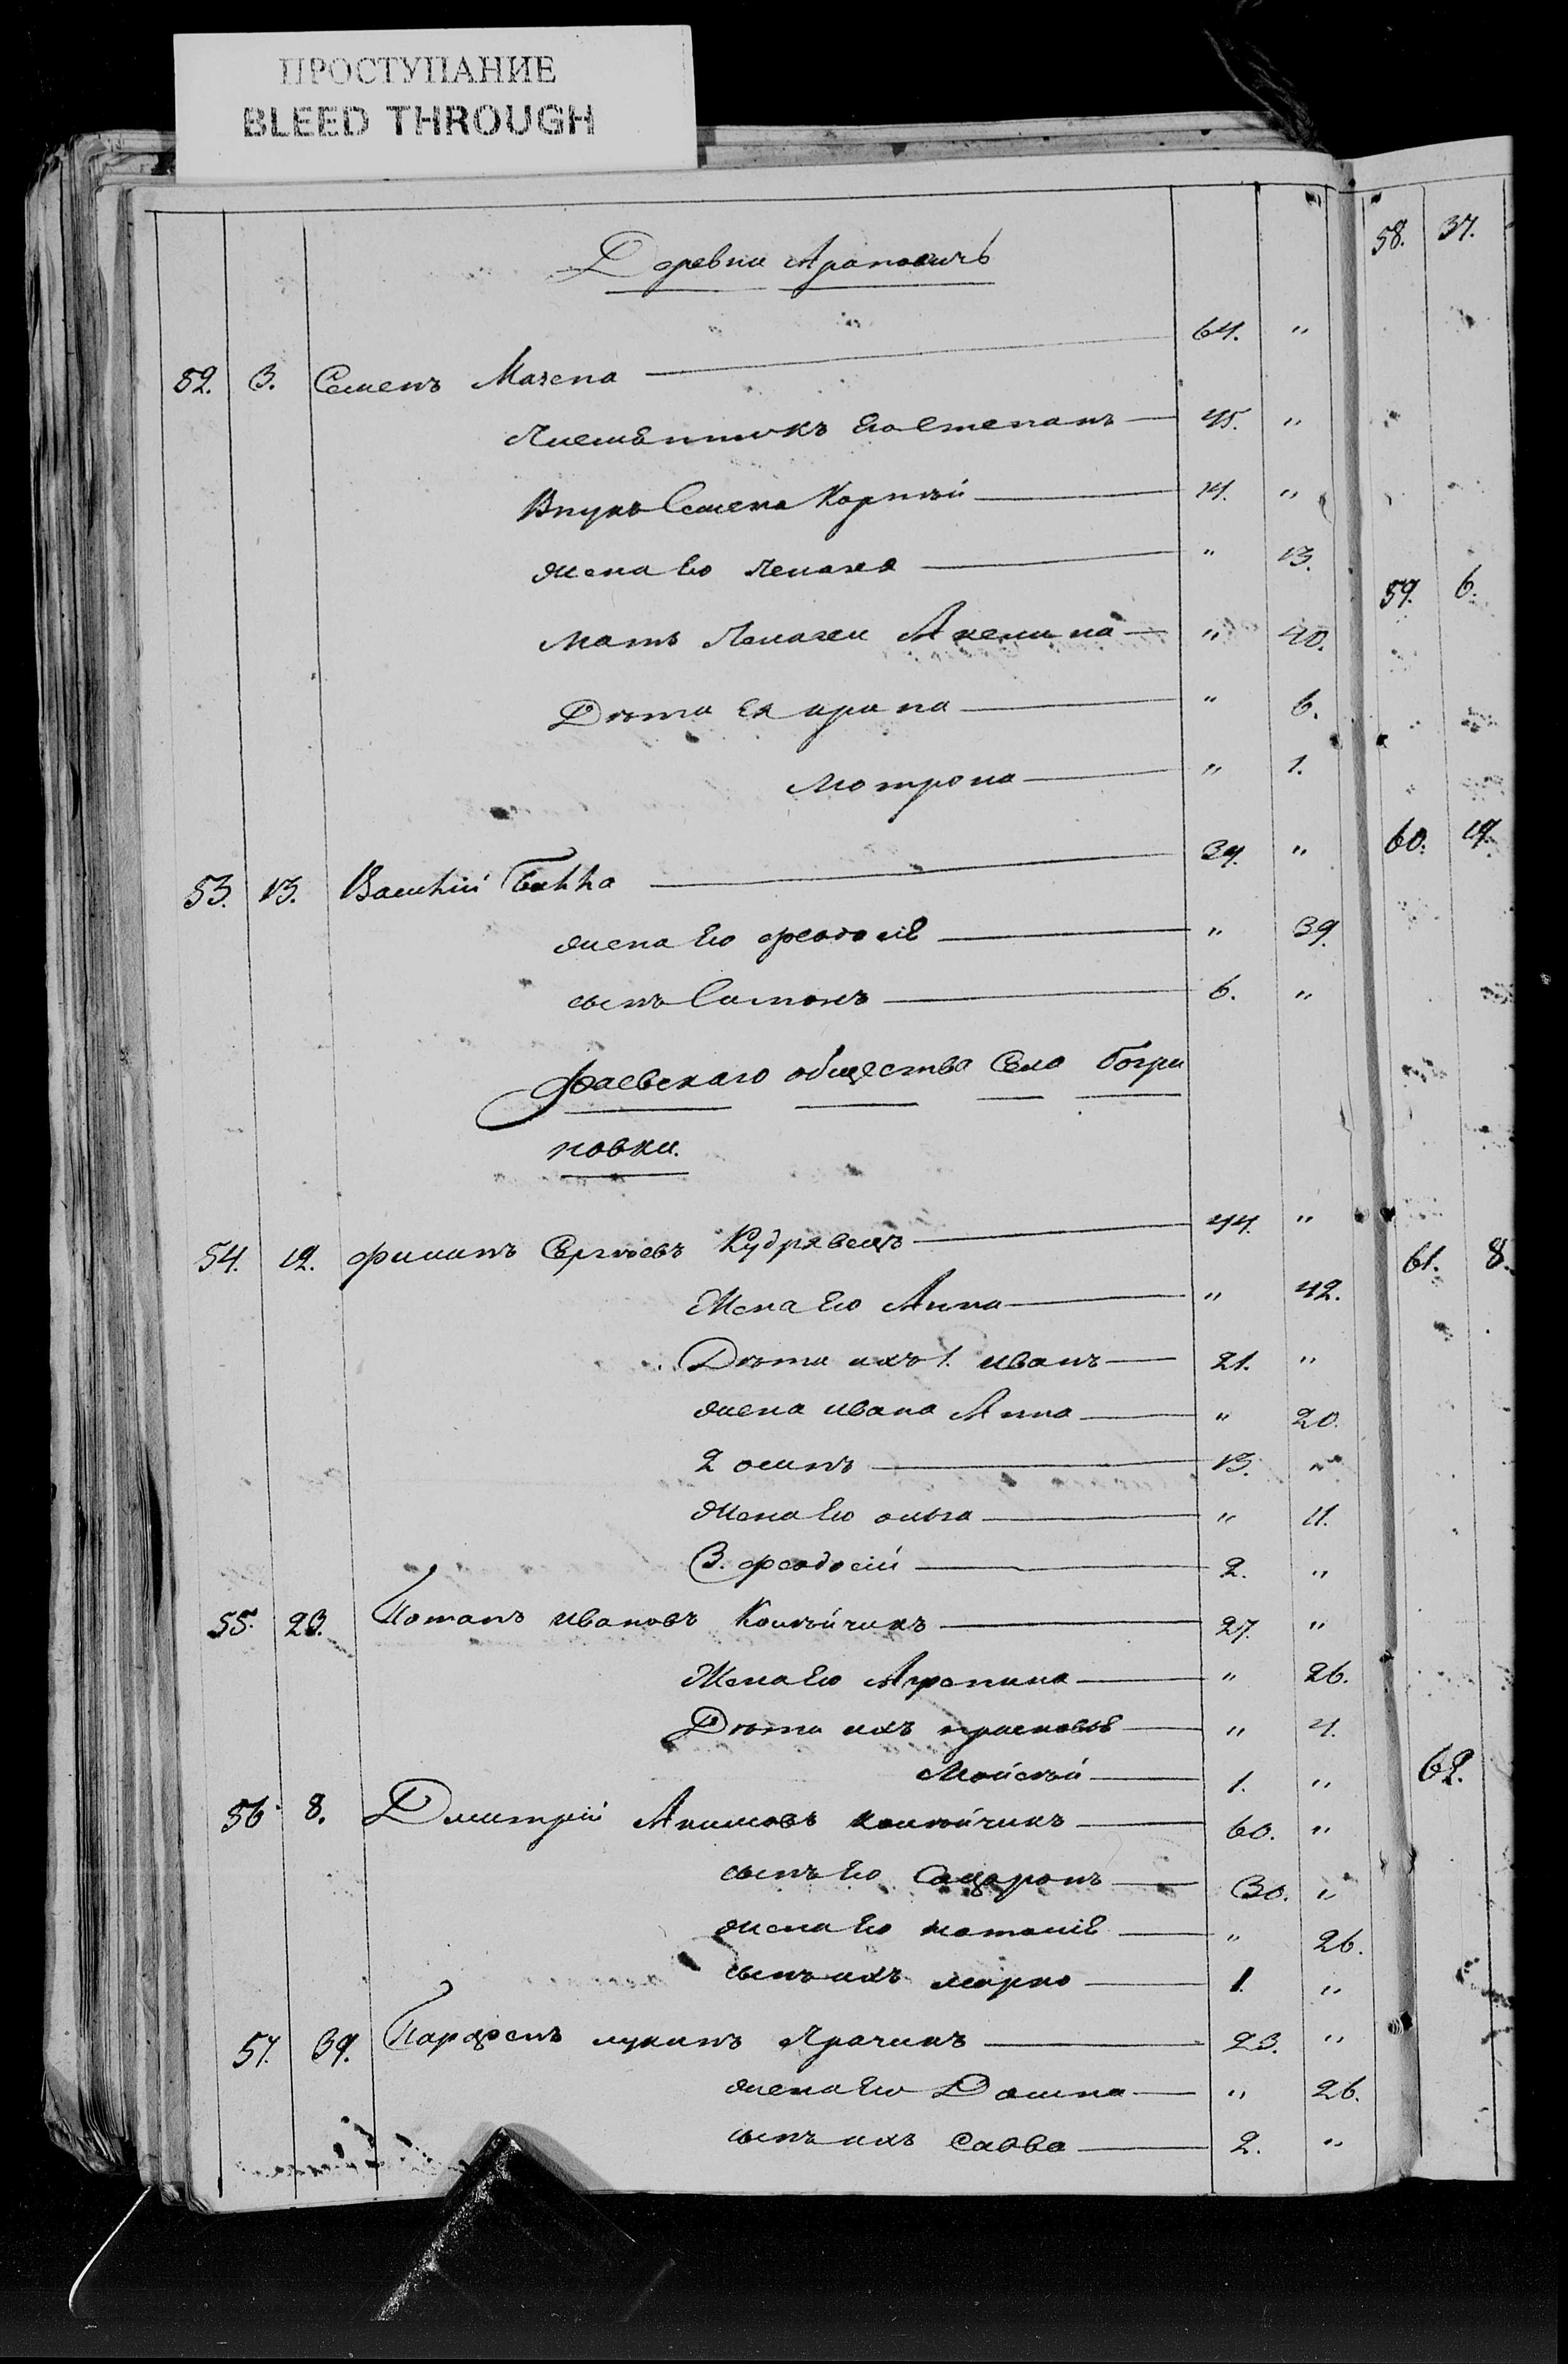 ПРОСТУПАНИЕ
BLEED THROUGH
Деревни Араповичъ
52. 3. Семенъ Мазепа 64. "
Племѣнникъ Его Степанъ 45. "
Внукъ Семена Корнѣй 14. "
жена Его Пелагея " 13.
мать Пелагеи Акелина " 40.
Дѣти Ея ирина " 6.
Мотрона " 1.
53. 13. Василій 39. "
жена Его феодосiѣ " 39.
сынъ Самонъ 6. "
фаевскаго общества Села Богри
новки.
54. 12. филипъ Сергѣевъ Кудрявецъ 44. "
Жена Его Анна " 42.
Дѣти ихъ 1. иванъ 21. "
жена ивана Анна " 20.
2 осипъ 13. "
жена Его ольга " 11.
3. феодосій 2. "
55. 23. Потапъ ивановъ Колѣйчикъ 27. "
Жена Его Агрепина " 26.
Дѣти ихъ прасковьѣ " 4.
Мойсѣй 1. "
56. 8. Дмитрій Акимовъ колѣйчикъ 60. "
сынъ Его Софронъ 30. "
жена Его наталiѣ " 26.
сынъ ихъ марко 1. "
57. 39. Парфенъ лукинъ Прачикъ 23. "
жена Его Домна " 26.
сынъ ихъ Савва 2. "
58. 37.
59. 6.
60. 19.
61. 8.
62.